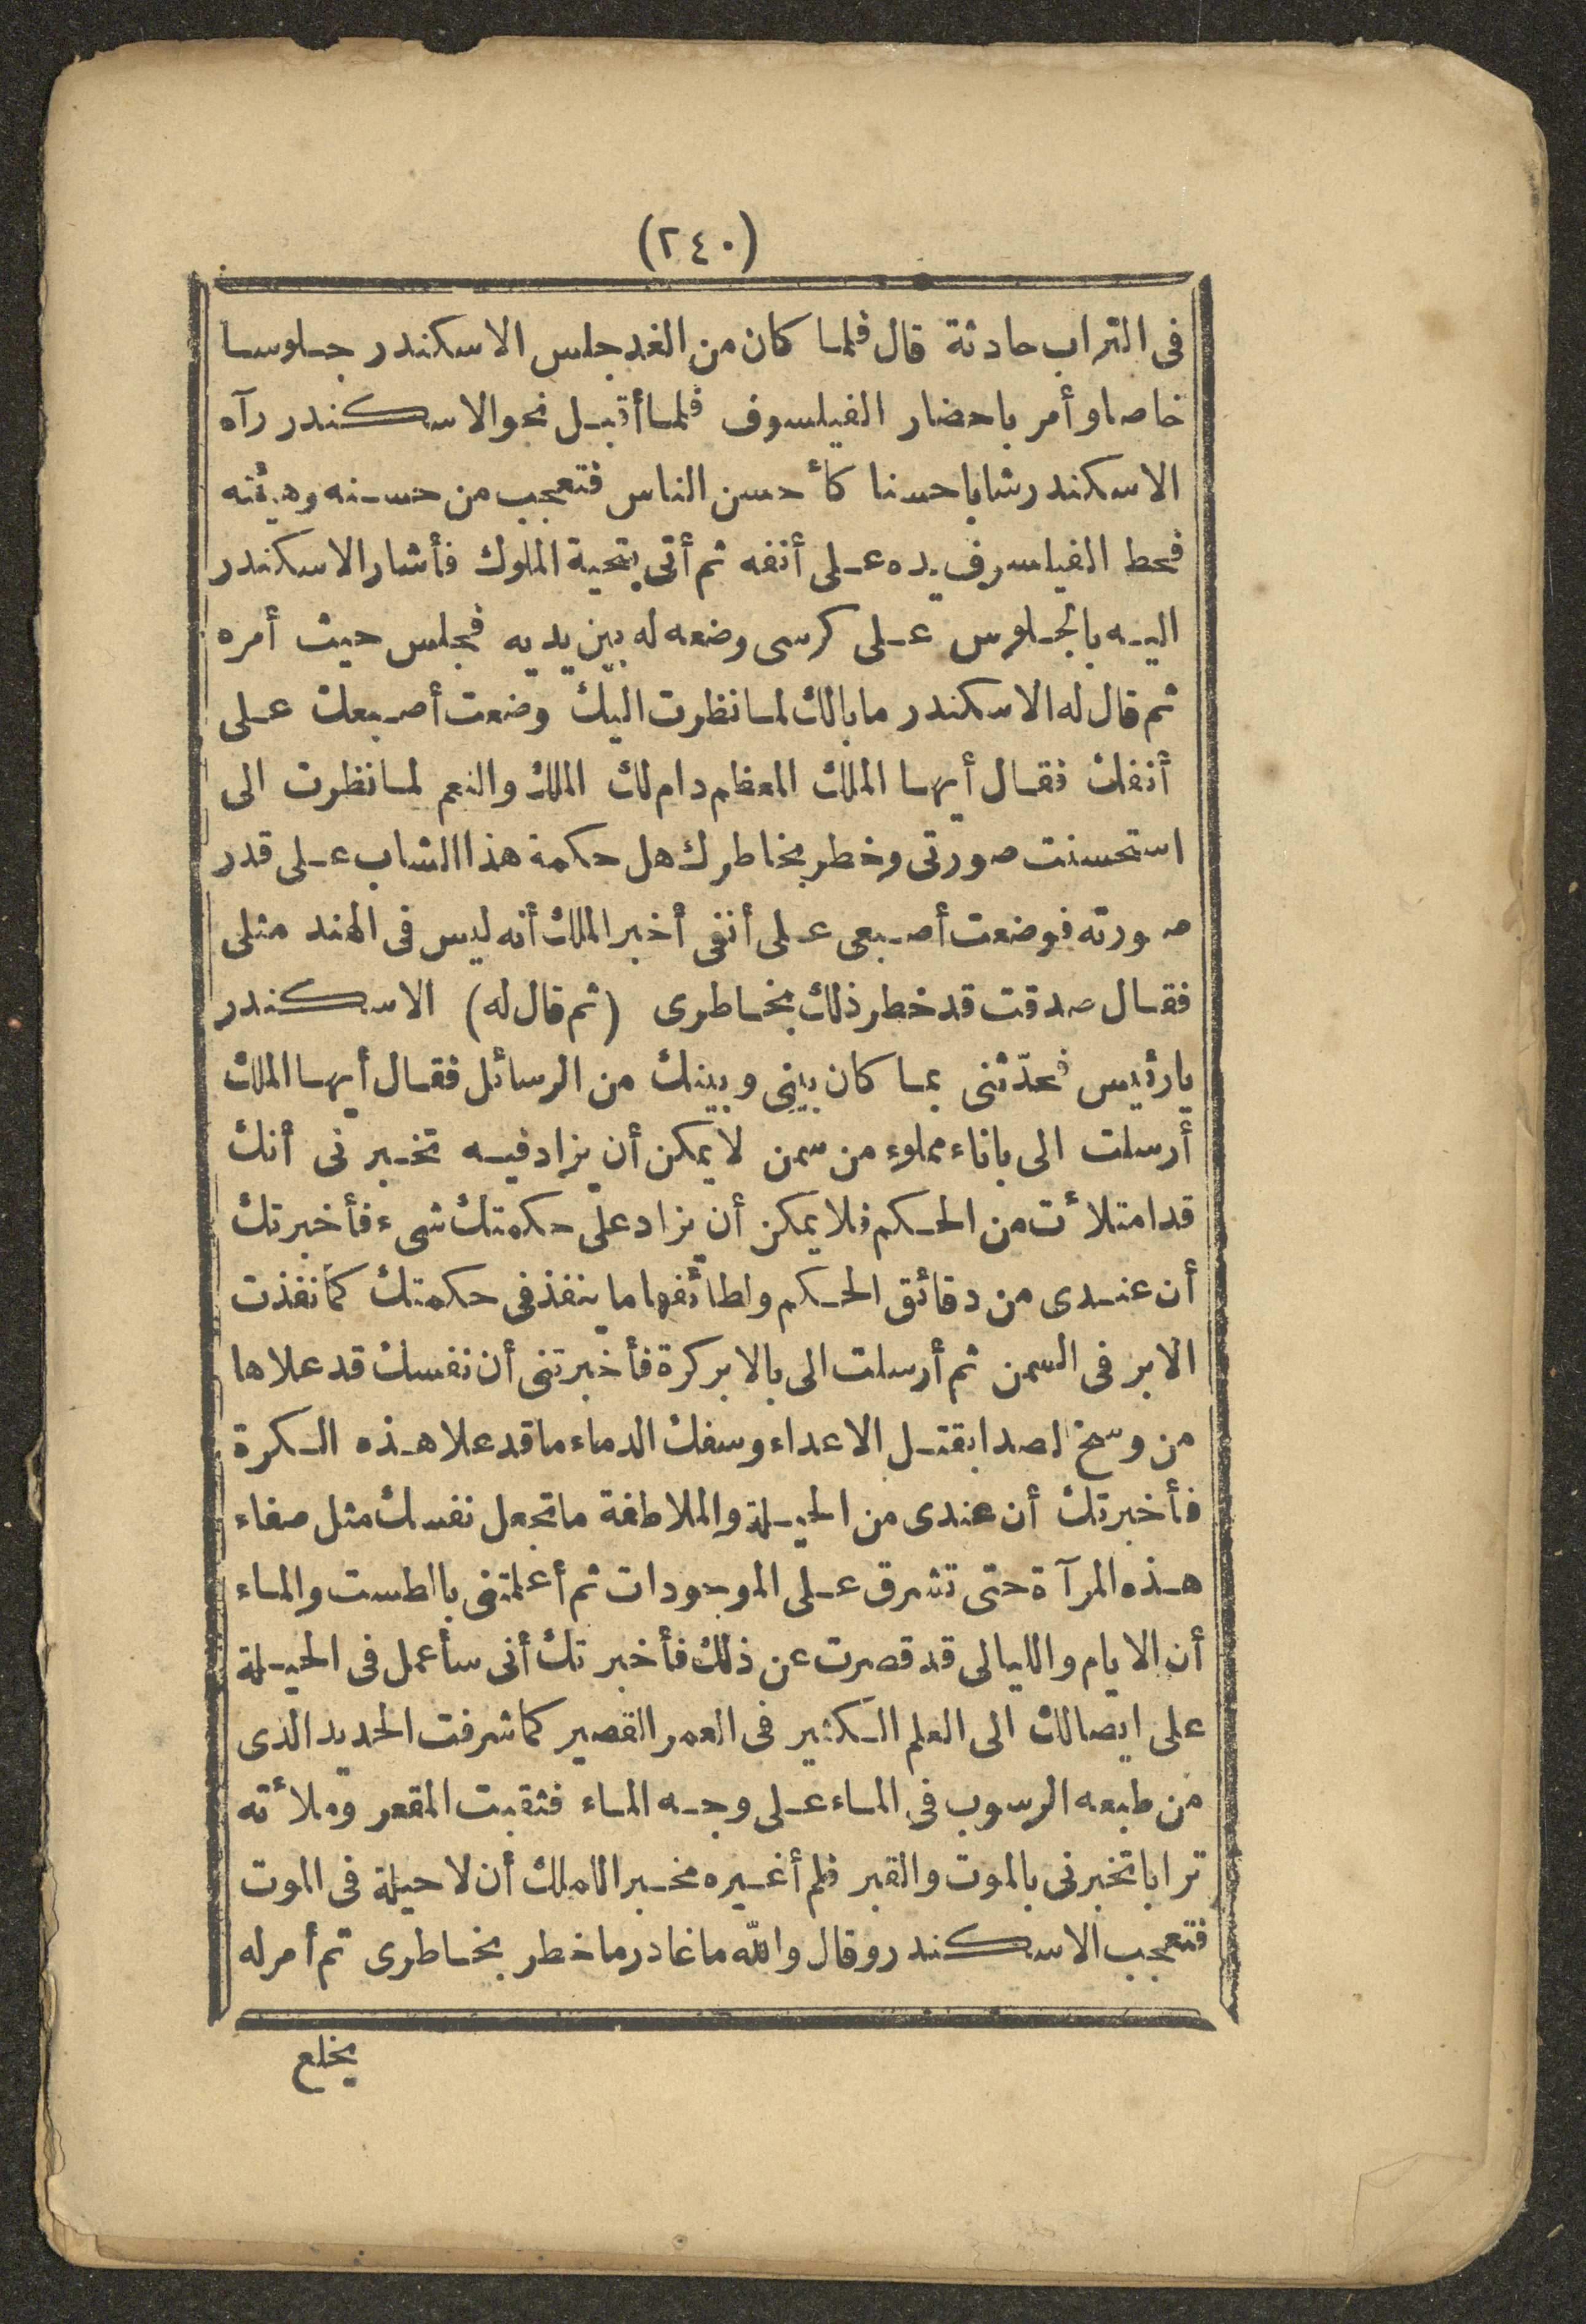 (٢٤٠)
فى التراب حادثة قال فلما كان من الغد جلس الاسكندر جلوسا
خاصا وأمر باحضار الفيلسوف فلما أقبل نحو الاسكندر رآه
الاسكندر شابا حسنا كأحسن الناس فتعجب من حسنه وهيئته
فحط الفيلسوف يده على أنفه ثم أتى بتحية الملوك فأشار الاسكندر
اليه بالجلوس على كرسى وضعه له بين يديه فجلس حيث أمره
ثم قال له الاسكندر ما بالك لما نظرت اليك وضعت أصبعك على
أنفك فقال أيها الملك المعظم دام لك الملك والنعم لما نظرت الى
استحسنت صورتى وخطر بخاطرك هل حكمة هذا الشاب على قدر
صورته فوضعت أصبعى على أنفى أخبر الملك أنه ليس فى الهند مثلى
فقال صدقت قد خطر ذلك بخاطرى (ثم قال له) الاسكندر
يا رئيس فحدّثنى بما كان بينى وبينك من الرسائل فقال أيها الملك
أرسلت الى باناء مملوء من سمن لا يمكن أن يزاد فيه تخبرنى أنك
قد امتلأت من الحكم فلا يمكن أن يزاد على حكمتك شىء فأخبرتك
أن عندى من دقائق الحكم ولطائفها ما ينفذ فى حكمتك كما نفذت
الابر فى السمن ثم أرسلت الى بالابر كرة فأخبرتنى أن نفسك قد علاها
من وسخ الصدا بقتل الاعداء وسفك الدماء ما قد علا هذه الكرة
فأخبرتك أن عندى من الحيلة والملاطفة ما تجعل نفسك مثل صفاء
هذه المرآة حتى تشرق على الموجودات ثم أعلمتنى بالطست والماء
أن الايام والليالى قد قصرت عن ذلك فأخبرتك أنى سأعمل فى الحيلة
على ايصالك الى العلم الكثير فى العمر القصير كما شرفت الحديد الذى
من طبعه الرسوب فى الماء على وجه الماء فثقبت المقعر وملأته
ترابا تخبرنى بالموت والقبر فلم أغيره مخبرا للملك أن لا حيلة فى الموت
فتعجب الاسكندر وقال والله ما غادر ما خطر بخاطرى ثم أمر له
بخلع